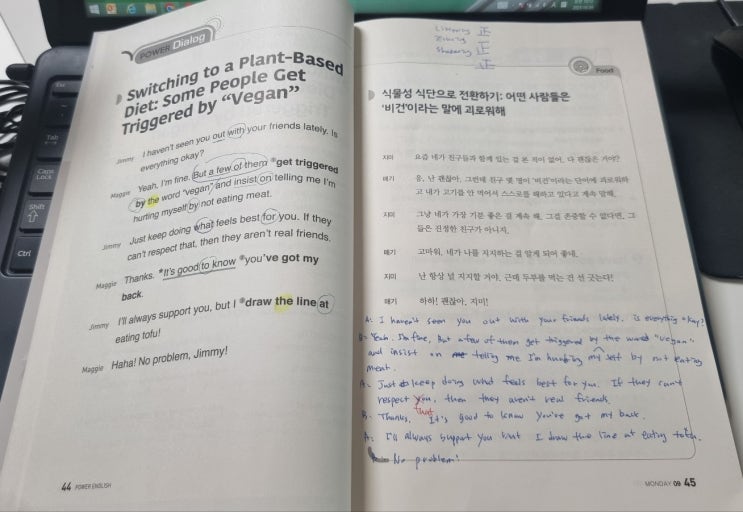 POWER Dialog
Switching to a Plant-Based
Diet: Some People Get
Triggered by “Vegan”
Jimmy I haven't seen you out with your friends lately. Is
everything okay?
Maggie Yeah, I'm fine. But a few of them *get triggered
by the word “vegan” and insist on telling me I'm
hurting myself by not eating meat.
Jimmy Just keep doing what feels best for you. If they
can't respect that, then they aren't real friends.
Maggie Thanks. *It's good to know *you've got my
back.
Jimmy I'll always support you, but I *draw the line at
eating tofu!
Maggie Haha! No problem, Jimmy!
44 POWER ENGLISH
Listening 正
正
Shadowing 正
正
Food
식물성 식단으로 전환하기: 어떤 사람들은
‘비건’이라는 말에 괴로워해
지미 요즘 네가 친구들과 함께 있는 걸 본 적이 없어. 다 괜찮은 거야?
매기 응, 난 괜찮아. 그런데 친구 몇 명이 ‘비건’이라는 단어에 괴로워하
고 내가 고기를 안 먹어서 스스로를 해하고 있다고 계속 말해.
지미 그냥 네가 가장 기분 좋은 걸 계속 해. 그걸 존중할 수 없다면, 그
들은 진정한 친구가 아니지.
매기 고마워. 네가 나를 지지하는 걸 알게 되어 좋네.
지미 난 항상 널 지지할 거야. 근데 두부를 먹는 건 선 긋는다!
매기 하하! 괜찮아, 지미!
A: I haven't seen you out with your friends lately. is everything okay?
B: Yeah. I'm fine, But a few of them get triggered by the word "vegan"
and insist on telling me I'm hurting my self by not eating
meat.
A: Just keep doing what feels best for you. If they can't
respect you, then they aren't real friends.
that
B: Thanks, It's good to know you've got my back.
A: I'll always support you but I draw the line at eating
No problem!
MONDAY 09 45
Tab
Caps
Lock
Shift
Ctrl